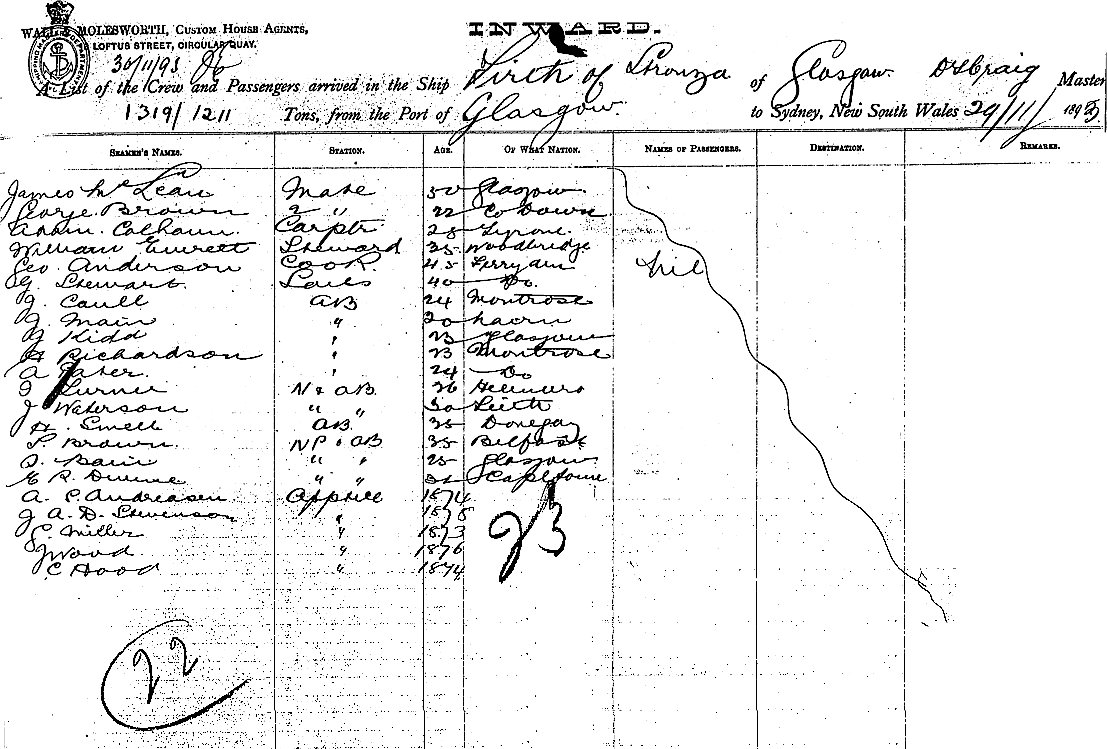 INWARD.
WALL & MOLESWORTH, CUSTOM HOUSE AGENTS,
LOFTUS STREET, CIRCULAR QUAY.
30/11/93
A List of the Crew and Passengers arrived in the Ship Firth of Stronza of Glasgow. Craig Master
1319/1211 Tons, from the Port of Glasgow. to Sydney, New South Wales 29/11/1893
SEAMEN'S NAMES. STATION. AGE. OF WHAT NATION. NAMES OF PASSENGERS. DESTINATION. REMARKS.
James McLean Mate 50 Glasgow
George Brown 2 " 22 Co Down
Calhoun. Carptr 28 Tyrone.
William Everett Steward 35 Woodbridge
Geo. Anderson Cook. 45 Ferryden nil
G. Stewart. Sails 40 Do.
J. Caull AB 24 Montrose
J Main " 20 Nairn
Kidd " 23 Glasgow
Richardson " 23 Montrose
A " 24 Do
J Turner AB 26
J Waterson " " 30 Leith
H. Smell AB 35 Donegay
Brown. NP & AB 35 Belfast
Bain " " 25 Glasgow
E R. Divine " " Capetown
A. P. Andreasen Apptice 1874
J A. D. Stevenson " 1878
Miller " 1873
J Wood " 1876
C Hood " 1874
23
22